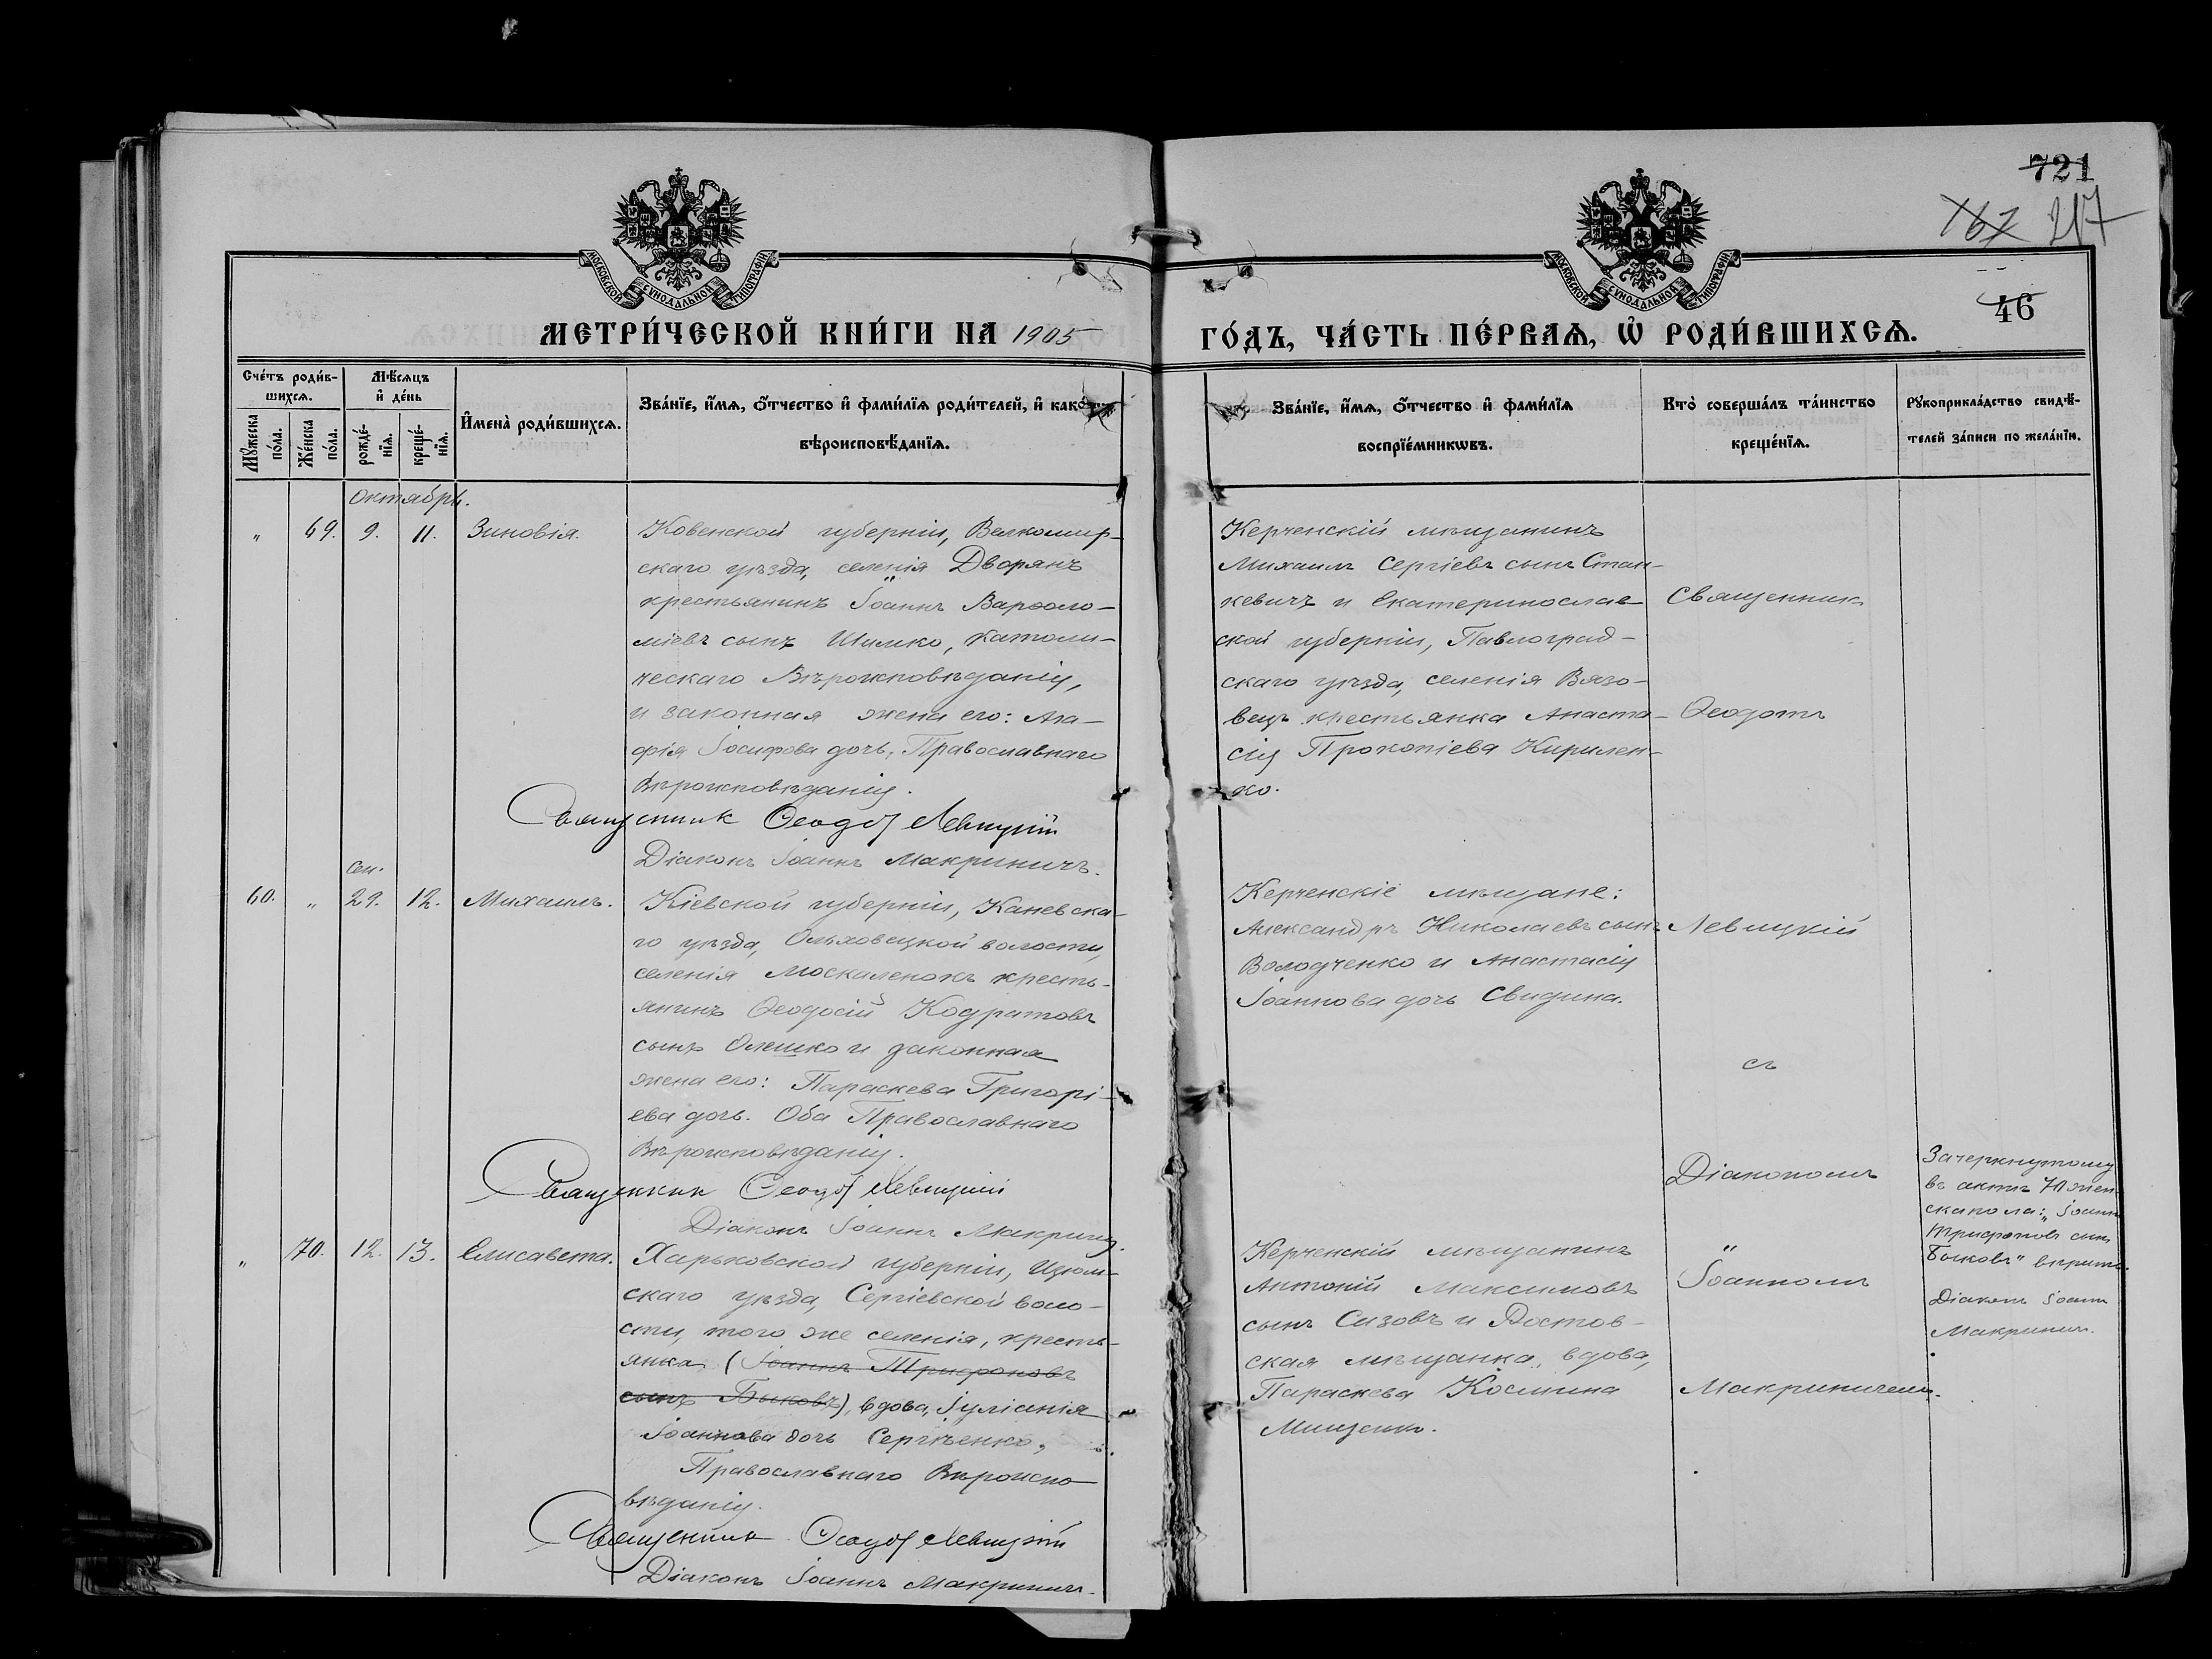 721
167 217
46
МОСКОВСКОЙ СѴНОДАЛЬНОЙ ТИПОГРАФІИ
МОСКОВСКОЙ СѴНОДАЛЬНОЙ ТИПОГРАФІИ
МЕТРИ́ЧЕСКОЙ КНИ́ГИ НА 1905
ГО́ДЪ, ЧА́СТЬ ПЕ́РВАѦ, Ѽ РОДИ́ВШИХСѦ.
Сче́тъ роди́в-
шихсѧ.
Мꙋ́жеска по́ла.
Же́нска по́ла.
Мѣ́сѧцъ
и҆ де́нь
рожде́-
нїѧ.
креще́-
нїѧ.
И҆мена̀ роди́вшихсѧ.
Зва́нїе, и҆́мѧ, ѻ҆́тчество и҆ фами́лїѧ роди́телей, и҆ како́гѡ
вѣроисповѣ́данїѧ.
Зва́нїе, и҆́мѧ, ѻ҆́тчество и҆ фами́лїѧ
воспрїе́мникѡвъ.
Кто̀ соверша́лъ та́инство
креще́нїѧ.
Рꙋкоприкла́дство свидѣ́-
телей за́писи по жела́нїю.
Октябрь.
" 69. 9. 11. Зиновія.
Ковенской губерніи, Велкомир-
скаго уѣзда, селенія Дворянъ
крестьянинъ Іоаннъ Варѳоло-
міевъ сынъ Шимко, католи-
ческаго Вѣроисповѣданія,
и законная жена его: Ага-
фія Іосифова дочь, Православнаго
Вѣроисповѣданія.
Священник Ѳеодот Левицкій
Діаконъ Іоаннъ Макриничъ.
Керченскій мѣщанинъ
Михаилъ Сергіевъ сынъ Стан-
кевичъ и Екатеринослав-
ской губерніи, Павлоград-
скаго уѣзда, селенія Вязо-
вецъ крестьянка Анаста-
сія Прокопіева Кирилен-
ко.
Священник
Ѳеодотъ
сен.
60. " 29. 12. Михаилъ.
Кіевской губерніи, Каневска-
го уѣзда, Ольховецкой волости,
селенія Москаленокъ кресть-
янинъ Ѳеодосій Кодратовъ
сынъ Олешко и законная
жена его: Параскева Григорі-
ева дочь. Оба Православнаго
Вѣроисповѣданія.
Священник Ѳеодот Левицкій
Діаконъ Іоаннъ Макринич.
Керченскіе мѣщане:
Александръ Николаевъ сынъ
Володченко и Анастасія
Іоаннова дочь Свидина.
Левицкій
съ
Діакономъ
" 70. 12. 13. Елисавета.
Харьковской губерніи, Изюм-
скаго уѣзда, Сергіевской воло-
сти, того же селенія, кресть-
янка (Іоаннъ Трифоновъ
сынъ Быковъ), вдова, Іуліанія
Іоаннова дочь Сергѣенко,
Православнаго Вѣроиспо-
вѣданія.
Священник Ѳеодот Левицкій
Діаконъ Іоаннъ Макринич.
Керченскій мѣщанинъ
Антоній Максимовъ
сынъ Сизовъ и Ростов-
ская мѣщанка, вдова,
Параскева Космина
Мищенко.
"
Іоанномъ
Макриничемъ.
Зачеркнутому
въ актѣ 70 жен-
ска пола: „Іоаннъ
Трифоновъ сынъ
Быковъ" вѣрить.
Діаконъ Іоаннъ
Макринич.